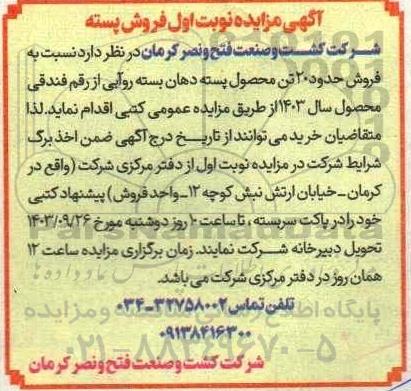 آگهی مزایده نوبت اول فروش پسته
شرکت کشت و صنعت فتح و نصر کرمان در نظر دارد نسبت به
فروش حدود ۲۰ تن محصول پسته دهان بسته روآبی از رقم فندقی
محصول سال ۱۴۰۳ از طریق مزایده عمومی کتبی اقدام نماید. لذا
متقاضیان خرید می توانند از تاریخ درج آگهی ضمن اخذ برگ
شرایط شرکت در مزایده نوبت اول از دفتر مرکزی شرکت (واقع در
کرمان - خیابان ارتش نبش کوچه ۱۲ - واحد فروش) پیشنهاد کتبی
خود را در پاکت سربسته ، تا ساعت ۱۰ روز دوشنبه مورخ ۱۴۰۳/۰۹/۲۶
تحویل دبیرخانه شرکت نمایند. زمان برگزاری مزایده ساعت ۱۲
همان روز در دفتر مرکزی شرکت می باشد.
تلفن تماس ۳۲۷۵۸۰۰۲-۰۳۴
۰۹۱۳۸۴۱۶۳۰۰
شرکت کشت و صنعت فتح و نصر کرمان
پایگاه اطلاع رسانی مناقصه و مزایده
۰۲۱-۸۸۳۴۹۶۷۰-۵